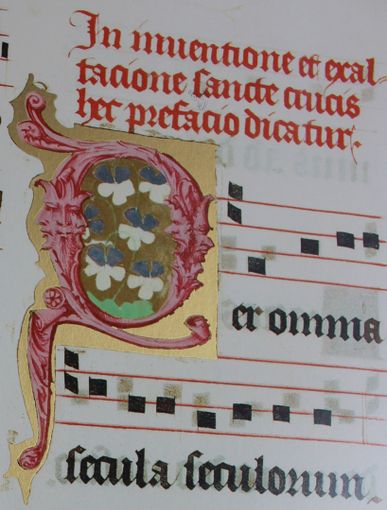 In inuentione et exal-
tacione sancte crucis
hec prefacio dicatur.
Per omnia
secula seculorum.